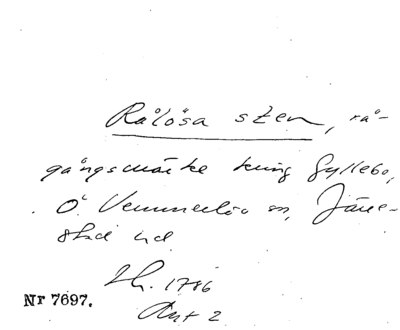 Rålösa sten, rå-
gångsmärke kring Gyllebo,
Ö Vemmerlöv sn, Järre-
stad hd
Lh. 1786
Akt 2
Nr 7697.